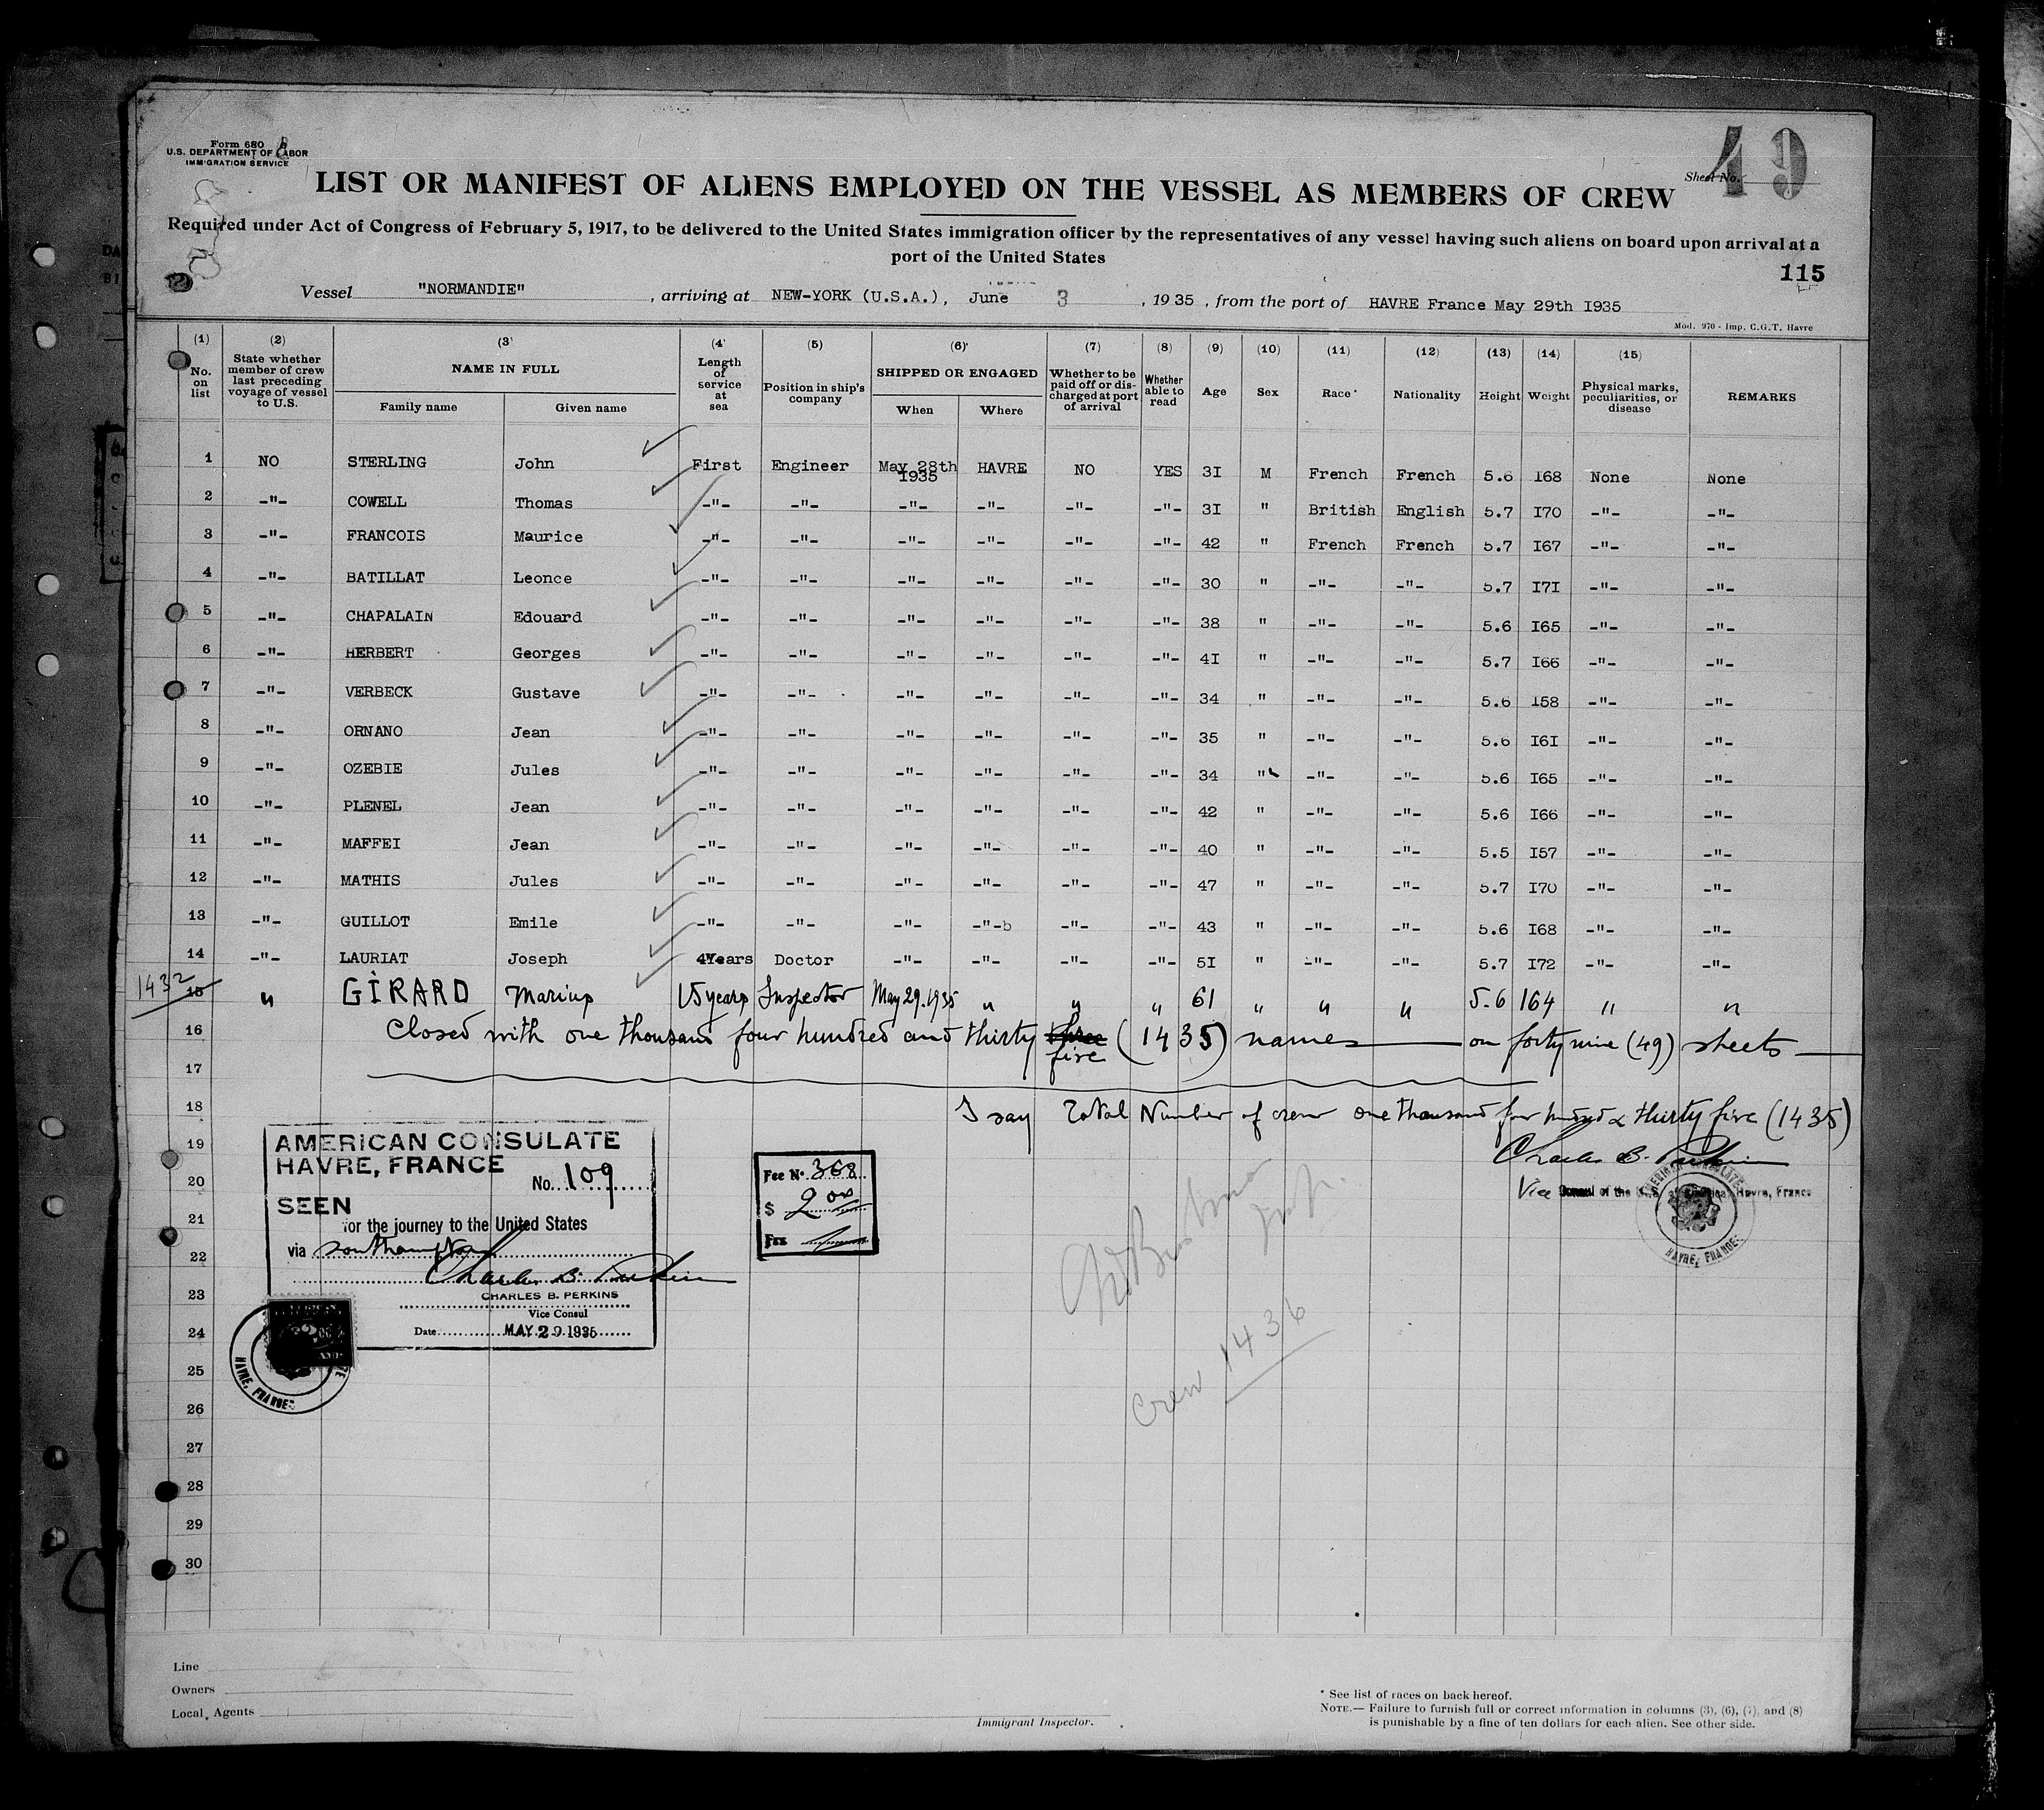 Form 680 B
U.S. DEPARTMENT OF LABOR
IMMIGRATION SERVICE
Sheet No. 49
LIST OR MANIFEST OF ALIENS EMPLOYED ON THE VESSEL AS MEMBERS OF CREW
Required under Act of Congress of February 5, 1917, to be delivered to the United States immigration officer by the representatives of any vessel having such aliens on board upon arrival at a
port of the United States
115
Vessel "NORMANDIE" , arriving at NEW-YORK (U.S.A.), June 3 , 1935 , from the port of HAVRE France May 29th I935
Mod. 970 - Imp. C.G.T. Havre
(1) (2) (3) (4) (5) (6) (7) (8) (9) (10) (11) (12) (13) (14) (15)
No. on list State whether member of crew last preceding voyage of vessel to U.S. NAME IN FULL Family name Given name Length of service at sea Position in ship's company SHIPPED OR ENGAGED When Where Whether to be paid off or discharged at port of arrival Whether able to read Age Sex Race* Nationality Height Weight Physical marks, peculiarities, or disease REMARKS
1 NO STERLING John First Engineer May 28th 1935 HAVRE NO YES 3I M French French 5.6 I68 None None
2 -"- COWELL Thomas -"- -"- -"- -"- -"- -"- 3I " British English 5.7 I70 -"- -"-
3 -"- FRANCOIS Maurice -"- -"- -"- -"- -"- -"- 42 " French French 5.7 I67 -"- -"-
4 -"- BATILLAT Leonce -"- -"- -"- -"- -"- -"- 30 " -"- -"- 5.7 I7I -"- -"-
5 -"- CHAPALAIN Edouard -"- -"- -"- -"- -"- -"- 38 " -"- -"- 5.6 I65 -"- -"-
6 -"- HERBERT Georges -"- -"- -"- -"- -"- -"- 4I " -"- -"- 5.7 I66 -"- -"-
7 -"- VERBECK Gustave -"- -"- -"- -"- -"- -"- 34 " -"- -"- 5.6 I58 -"- -"-
8 -"- ORNANO Jean -"- -"- -"- -"- -"- -"- 35 " -"- -"- 5.6 I6I -"- -"-
9 -"- OZEBIE Jules -"- -"- -"- -"- -"- -"- 34 " -"- -"- 5.6 I65 -"- -"-
10 -"- PLENEL Jean -"- -"- -"- -"- -"- -"- 42 " -"- -"- 5.6 I66 -"- -"-
11 -"- MAFFEI Jean -"- -"- -"- -"- -"- -"- 40 " -"- -"- 5.5 I57 -"- -"-
12 -"- MATHIS Jules -"- -"- -"- -"- -"- -"- 47 " -"- -"- 5.7 I70 -"- -"-
13 -"- GUILLOT Emile -"- -"- -"- -"-b -"- -"- 43 " -"- -"- 5.6 I68 -"- -"-
14 -"- LAURIAT Joseph 4Years Doctor -"- -"- -"- -"- 5I " -"- -"- 5.7 I72 -"- -"-
1432 15 " GIRARD Marius 15 years Inspector May 29.1935 " " " 61 " " " 5.6 164 " "
16 Closed with one thousand four hundred and thirty three five (1435) names on forty nine (49) sheets
17
18 I say Total Number of crew one thousand four hundred & thirty five (1435)
Charles B. Perkins
Vice Consul of the U. S. of America, Havre, France
AMERICAN CONSULATE HAVRE, FRANCE
19
20
21
22
23
24
25
26
27
28
29
30
AMERICAN CONSULATE
HAVRE, FRANCE
No. 109
SEEN
for the journey to the United States
via Southampton
Charles B. Perkins
CHARLES B. PERKINS
Vice Consul
Date MAY 29.1935
HAVRE, FRANCE
Fee No. 368
$ 2.00
Crew 1436
Line
Owners
Local Agents
Immigrant Inspector.
* See list of races on back hereof.
NOTE.— Failure to furnish full or correct information in columns (3), (6), (7), and (8)
is punishable by a fine of ten dollars for each alien. See other side.